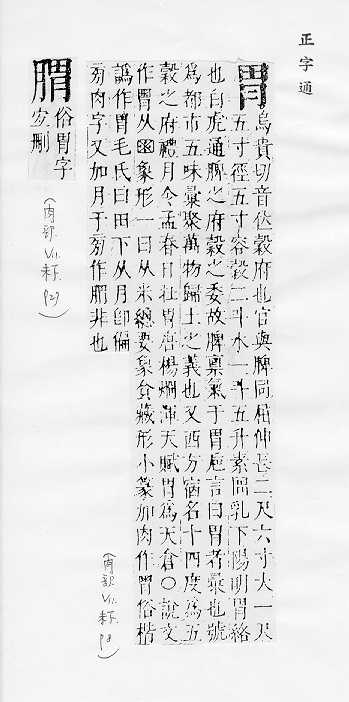 正字通
胃
烏貴切音位穀府也官與脾同屈伸長二尺六寸大一尺
五寸徑五寸容穀二斗水一斗五升素問乳下陽明胃絡
也白虎通脾之府穀之委故脾稟氣于胃 言曰胃者彙也號
爲都市五味彙聚萬物歸土之義也又西方宿名十四度爲五
穀之府禮月令孟春日 胃 楊烱渾天賦胃爲天倉○說文
作胃从 象形一曰从米總要象食藏形小篆加肉作胃俗楷
譌作胃毛氏曰田下从月卽偏
旁肉字又加月于旁作腗非也
腗
俗胃字
宜刪
(肉部 VII. 未下. P8)
(肉部 VII. 未下. P27)